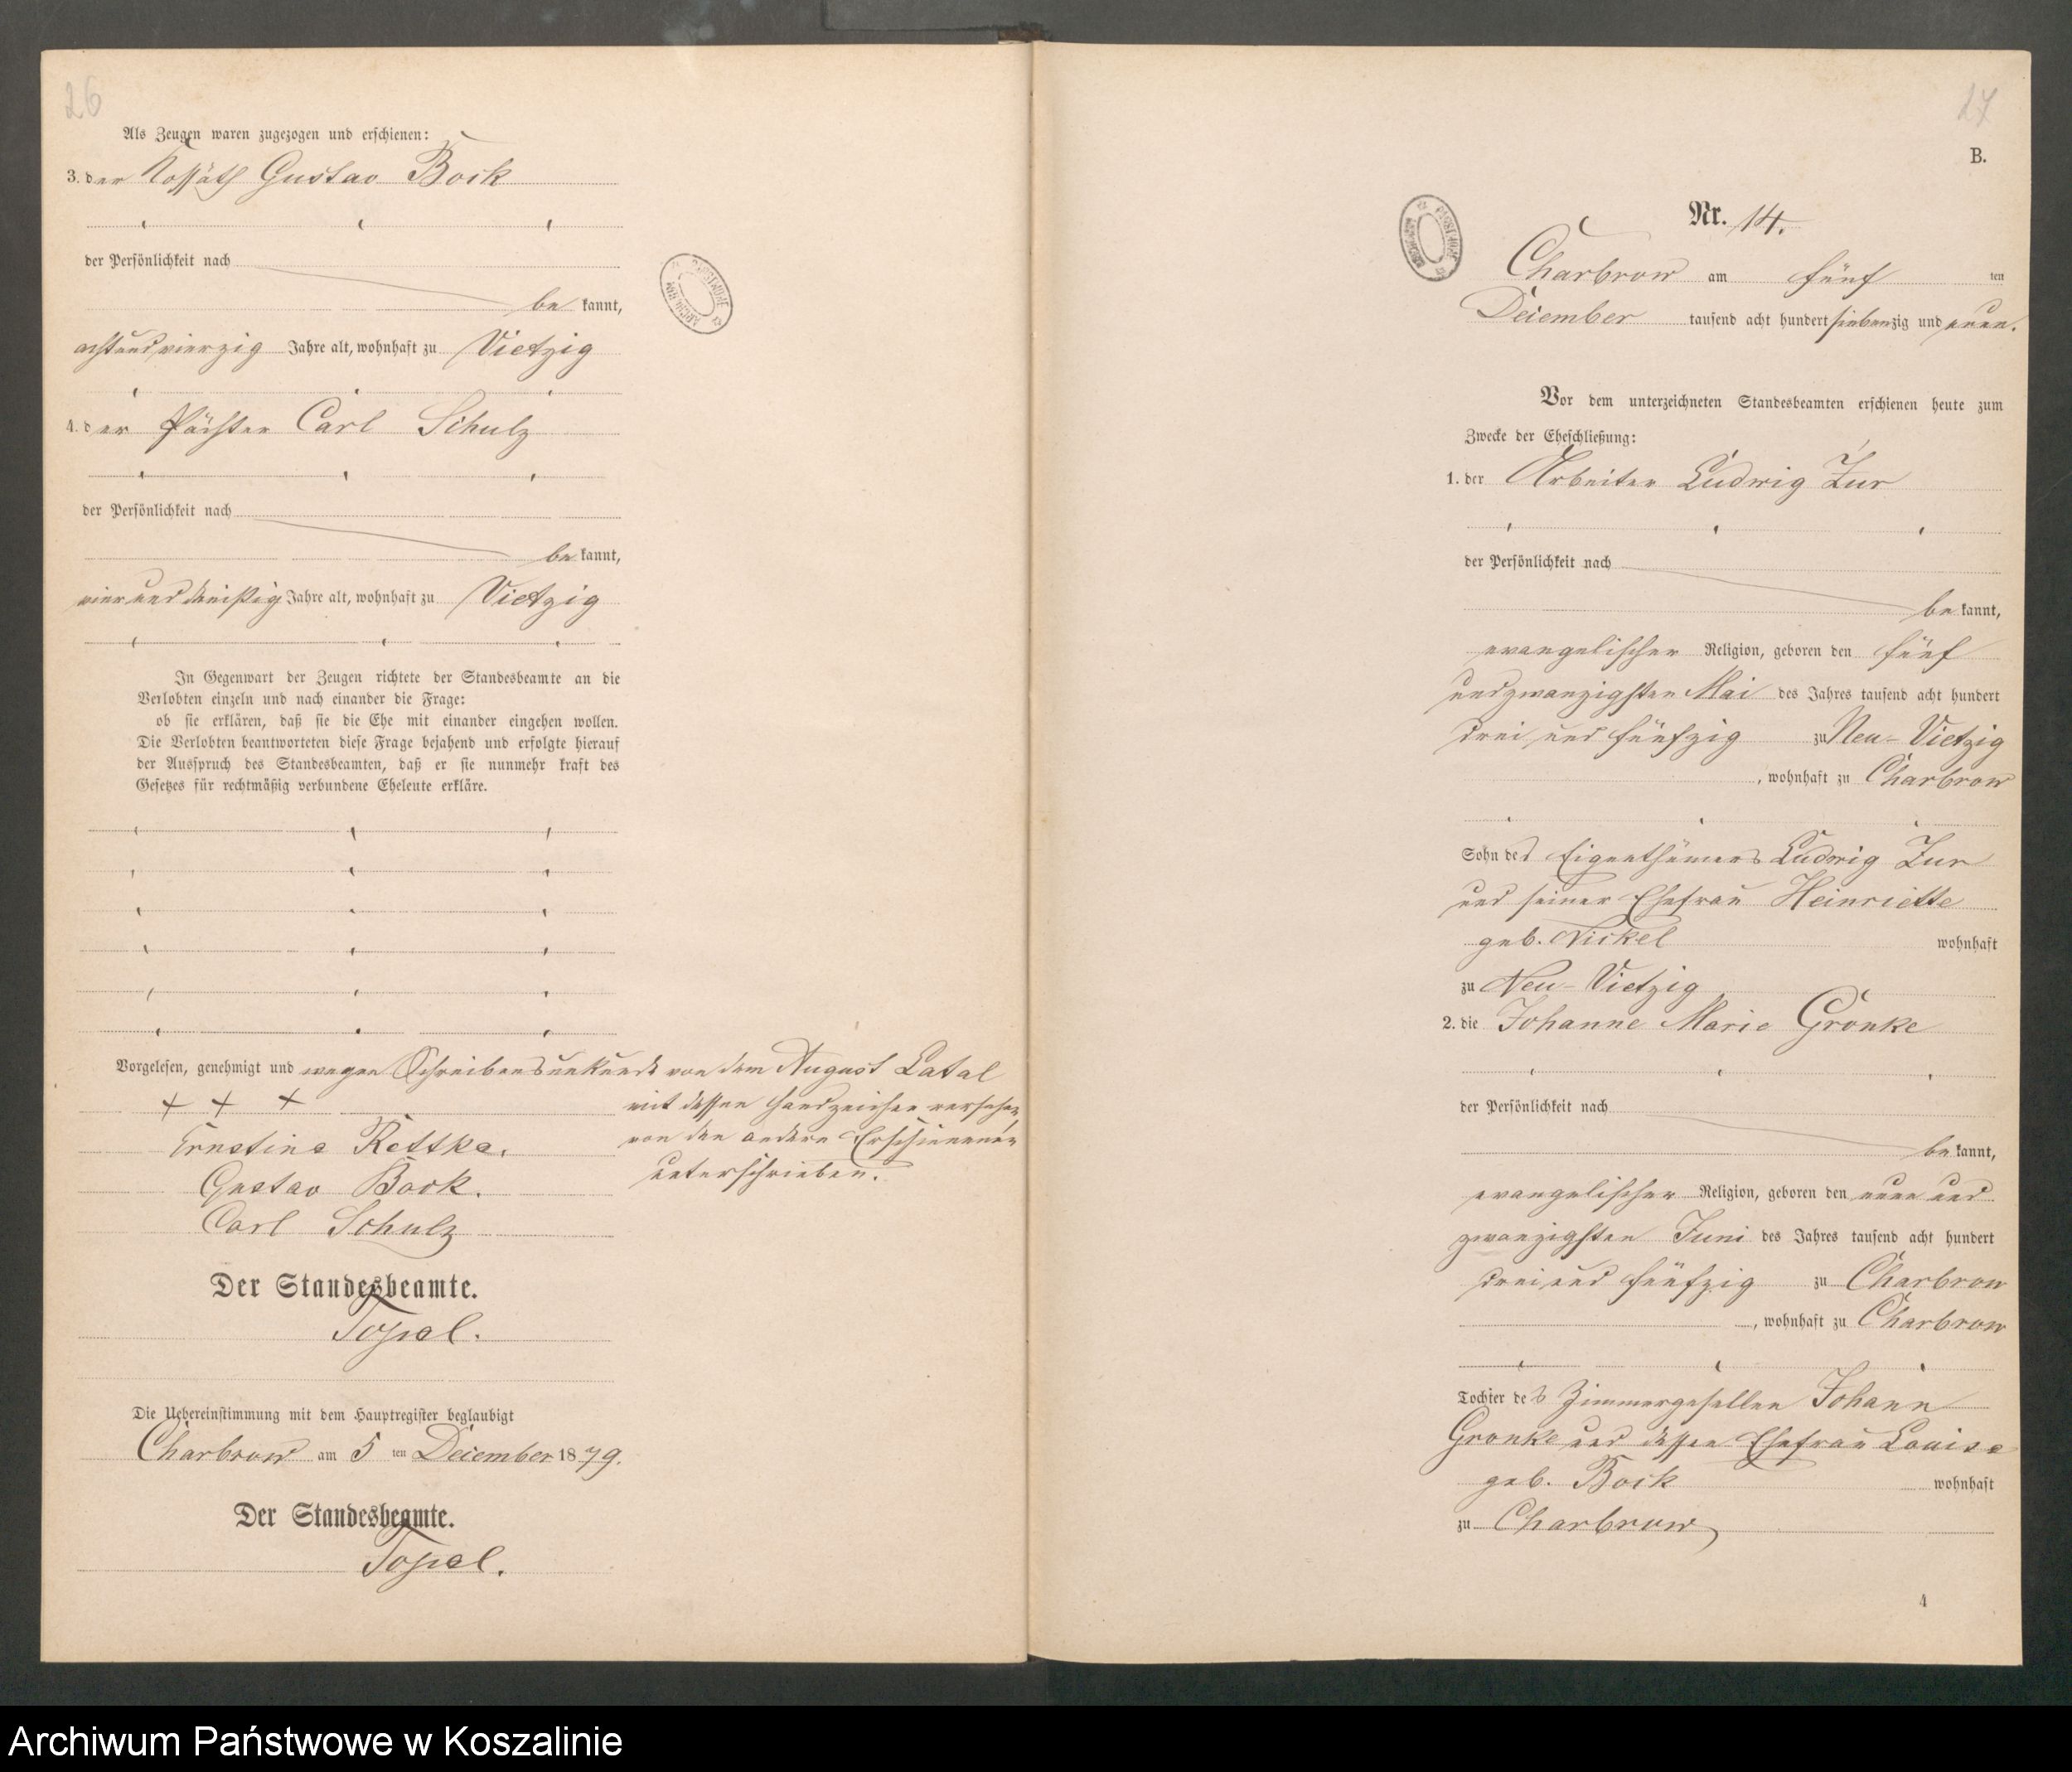 26
Als Zeugen waren zugezogen und erschienen:
3. der Kossäth Gustav Bock
der Persönlichkeit nach
be kannt,
achtundvierzig Jahre alt, wohnhaft zu Vietzig
4. der Pächter Carl Schulz
der Persönlichkeit nach
be kannt,
vier und dreißig Jahre alt, wohnhaft zu Vietzig
In Gegenwart der Zeugen richtete der Standesbeamte an die
Verlobten einzeln und nach einander die Frage:
ob sie erklären, daß sie die Ehe mit einander eingehen wollen.
Die Verlobten beantworteten diese Frage bejahend und erfolgte hierauf
der Ausspruch des Standesbeamten, daß er sie nunmehr kraft des
Gesetzes für rechtmäßig verbundene Eheleute erkläre.
Vorgelesen, genehmigt und wegen Schreibensunkunde von dem August Latal
+ + + mit dessen Handzeichen versehen,
Ernestine Rettke. von den andern Erschienenen
Gustav Bock. unterschrieben.
Carl Schulz
Der Standesbeamte.
Topel.
Die Uebereinstimmung mit dem Hauptregister beglaubigt
Charbrow am 5 ten December 1879.
Der Standesbeamte.
Topel.
27
B.
Nr. 14.
Charbrow am fünf ten
December tausend acht hundert siebenzig und neun.
Vor dem unterzeichneten Standesbeamten erschienen heute zum
Zwecke der Eheschließung:
1. der Arbeiter Ludwig Zur
der Persönlichkeit nach
be kannt,
evangelischer Religion, geboren den fünf
undzwanzigsten Mai des Jahres tausend acht hundert
drei und fünfzig zu Neu-Vietzig
, wohnhaft zu Charbrow
Sohn des Eigenthümers Ludwig Zur
und seiner Ehefrau Heinriette
geb. Nickel wohnhaft
zu Neu-Vietzig
2. die Johanne Marie Gronke
der Persönlichkeit nach
be kannt,
evangelischer Religion, geboren den neun und
zwanzigsten Juni des Jahres tausend acht hundert
drei und fünfzig zu Charbrow
, wohnhaft zu Charbrow
Tochter des Zimmergesellen Johann
Gronke und dessen Ehefrau Louise
geb. Bock wohnhaft
zu Charbrow
4
Archiwum Państwowe w Koszalinie